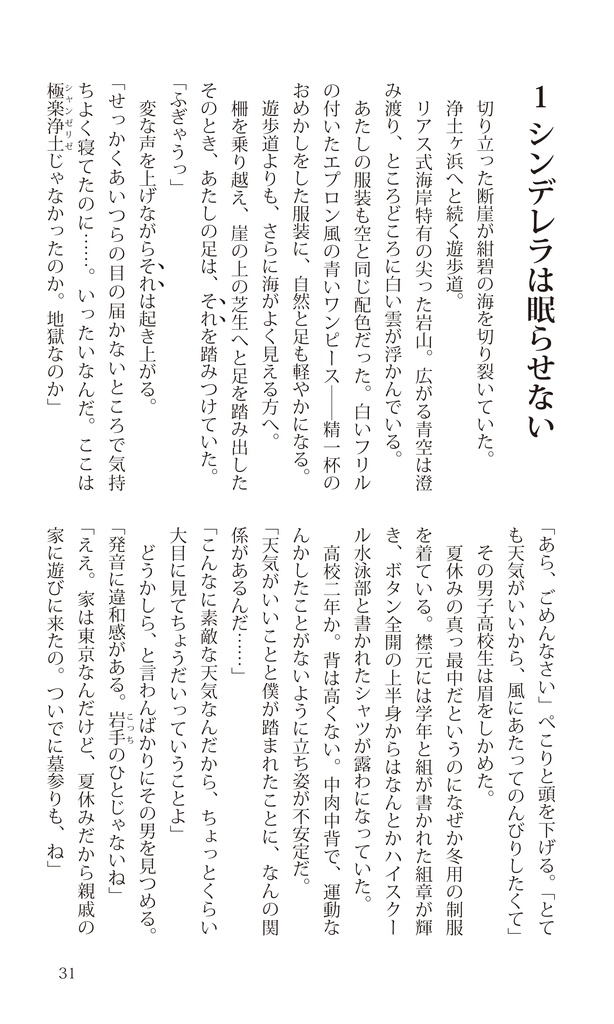 1 シンデレラは眠らせない
切り立った断崖が紺碧の海を切り裂いていた。
浄土ヶ浜へと続く遊歩道。
リアス式海岸特有の尖った岩山。広がる青空は澄
み渡り、ところどころに白い雲が浮かんでいる。
あたしの服装も空と同じ配色だった。白いフリル
の付いたエプロン風の青いワンピース――精一杯の
おめかしをした服装に、自然と足も軽やかになる。
遊歩道よりも、さらに海がよく見える方へ。
柵を乗り越え、崖の上の芝生へと足を踏み出した
そのとき、あたしの足は、それを踏みつけていた。
「ふぎゃうっ」
変な声を上げながらそれは起き上がる。
「せっかくあいつらの目の届かないところで気持
ちよく寝てたのに……。いったいなんだ。ここは
極楽浄土じゃなかったのか。地獄なのか」
シャンゼリゼ
「あら、ごめんなさい」ぺこりと頭を下げる。「とて
も天気がいいから、風にあたってのんびりしたくて」
その男子高校生は眉をしかめた。
夏休みの真っ最中だというのになぜか冬用の制服
を着ている。襟元には学年と組が書かれた組章が輝
き、ボタン全開の上半身からはなんとかハイスクー
ル水泳部と書かれたシャツが露わになっていた。
高校二年か。背は高くない。中肉中背で、運動な
んかしたことがないように立ち姿が不安定だ。
「天気がいいことと僕が踏まれたことに、なんの関
係があるんだ……」
「こんなに素敵な天気なんだから、ちょっとくらい
大目に見てちょうだいっていうことよ」
どうかしら、と言わんばかりにその男を見つめる。
「発音に違和感がある。岩手のひとじゃないね」
こっち
「ええ。家は東京なんだけど、夏休みだから親戚の
家に遊びに来たの。ついでに墓参りも、ね」
31